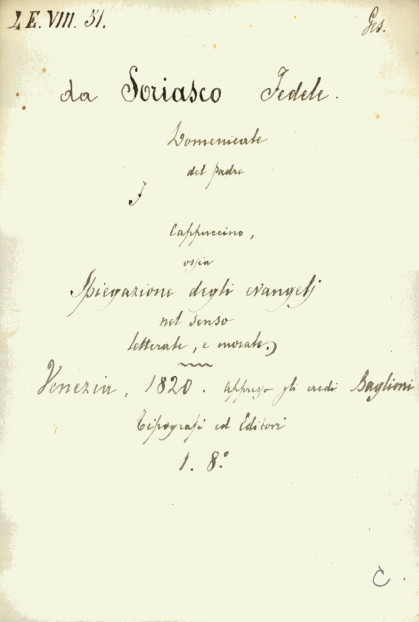 L E. VIII. 51. Ges.
da Soriasco Fedele.
Domenicale
del padre
J
Cappuccino,
ossia
Spiegazione degli evangelj
nel senso
letterale, e morale.)
Venezia, 1820. appresso gli eredi Baglioni
Tipografi ed Editori
1. 8.°
C.